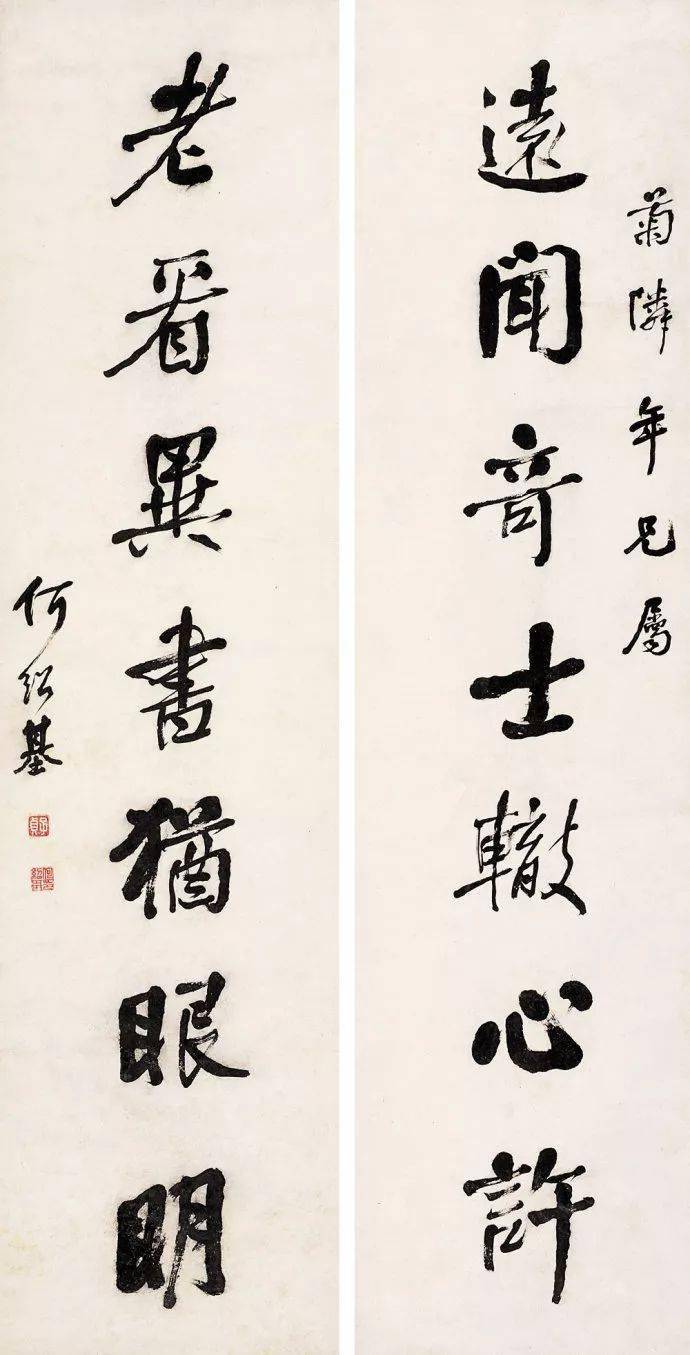 菊隣年兄屬
遠聞奇士轍心許
老看異書猶眼明
何紹基
子貞